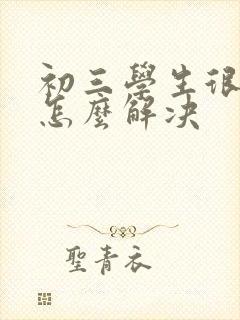 初三學生很
怎麼解決
聖青衣